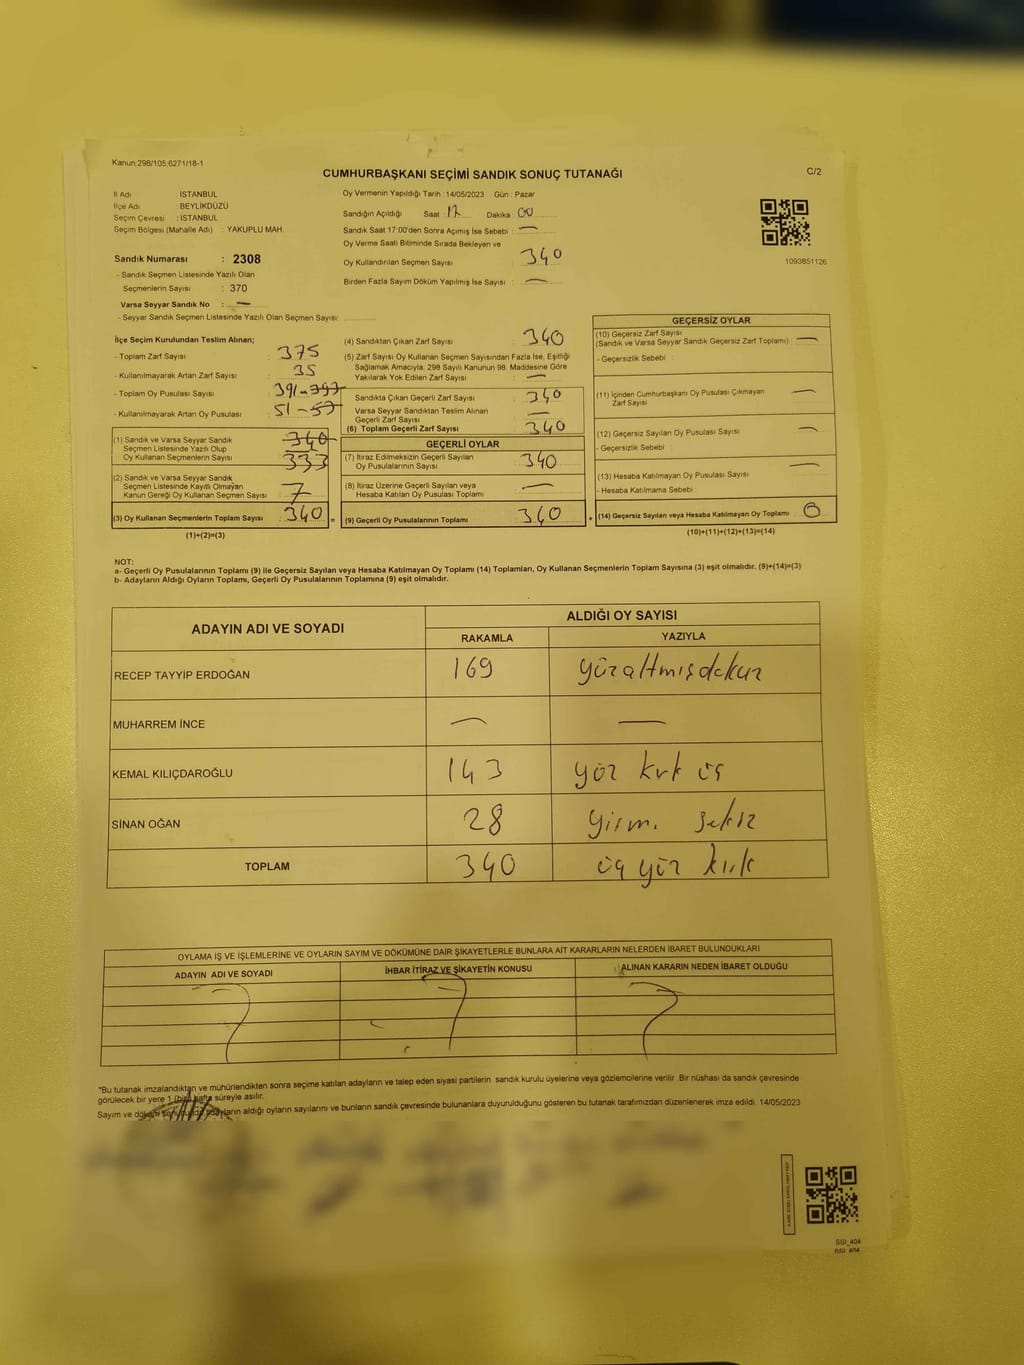 Kanun:298/105;6271/18-1
CUMHURBAŞKANI SEÇİMİ SANDIK SONUÇ TUTANAĞI
C/2
İl Adı : İSTANBUL
İlçe Adı : BEYLİKDÜZÜ
Seçim Çevresi : İSTANBUL
Seçim Bölgesi (Mahalle Adı) : YAKUPLU MAH.
Oy Vermenin Yapıldığı Tarih : 14/05/2023 Gün : Pazar
Sandığın Açıldığı Saat : 17 Dakika : 00
Sandık Saat 17:00'den Sonra Açımış İse Sebebi : —
Oy Verme Saati Bitiminde Sırada Bekleyen ve
Oy Kullandırılan Seçmen Sayısı : 340
Birden Fazla Sayım Döküm Yapılmış İse Sayısı : —
1093851126
Sandık Numarası : 2308
- Sandık Seçmen Listesinde Yazılı Olan
Seçmenlerin Sayısı : 370
Varsa Seyyar Sandık No : —
- Seyyar Sandık Seçmen Listesinde Yazılı Olan Seçmen Sayısı
İlçe Seçim Kurulundan Teslim Alınan;
- Toplam Zarf Sayısı : 375
- Kullanılmayarak Artan Zarf Sayısı : 35
- Toplam Oy Pusulası Sayısı : 391-397
- Kullanılmayarak Artan Oy Pusulası : 51-57
(1) Sandık ve Varsa Seyyar Sandık
Seçmen Listesinde Yazılı Olup
Oy Kullanan Seçmenlerin Sayısı
340
333
(2) Sandık ve Varsa Seyyar Sandık
Seçmen Listesinde Kayıtlı Olmayan
Kanun Gereği Oy Kullanan Seçmen Sayısı 7
(3) Oy Kullanan Seçmenlerin Toplam Sayısı 340 =
(1)+(2)=(3)
(4) Sandıktan Çıkan Zarf Sayısı : 340
(5) Zarf Sayısı Oy Kullanan Seçmen Sayısından Fazla İse, Eşitliği
Sağlamak Amacıyla; 298 Sayılı Kanunun 98. Maddesine Göre
Yakılarak Yok Edilen Zarf Sayısı : —
Sandıkta Çıkan Geçerli Zarf Sayısı : 340
Varsa Seyyar Sandıktan Teslim Alınan
Geçerli Zarf Sayısı : —
(6) Toplam Geçerli Zarf Sayısı : 340
GEÇERLİ OYLAR
(7) İtiraz Edilmeksizin Geçerli Sayılan
Oy Pusulalarının Sayısı : 340
(8) İtiraz Üzerine Geçerli Sayılan veya
Hesaba Katılan Oy Pusulası Toplamı : —
(9) Geçerli Oy Pusulalarının Toplamı : 340 +
GEÇERSİZ OYLAR
(10) Geçersiz Zarf Sayısı
(Sandık ve Varsa Seyyar Sandık Geçersiz Zarf Toplamı) : —
- Geçersizlik Sebebi :
(11) İçinden Cumhurbaşkanı Oy Pusulası Çıkmayan
Zarf Sayısı : —
(12) Geçersiz Sayılan Oy Pusulası Sayısı : —
- Geçersizlik Sebebi :
(13) Hesaba Katılmayan Oy Pusulası Sayısı : —
- Hesaba Katılmama Sebebi :
(14) Geçersiz Sayılan veya Hesaba Katılmayan Oy Toplamı : 0
(10)+(11)+(12)+(13)=(14)
NOT:
a- Geçerli Oy Pusulalarının Toplamı (9) ile Geçersiz Sayılan veya Hesaba Katılmayan Oy Toplamı (14) Toplamları, Oy Kullanan Seçmenlerin Toplam Sayısına (3) eşit olmalıdır. (9)+(14)=(3)
b- Adayların Aldığı Oyların Toplamı, Geçerli Oy Pusulalarının Toplamına (9) eşit olmalıdır.
ADAYIN ADI VE SOYADI ALDIĞI OY SAYISI
RAKAMLA YAZIYLA
RECEP TAYYİP ERDOĞAN 169 yüzaltmışdokuz
MUHARREM İNCE — —
KEMAL KILIÇDAROĞLU 143 yüz kırk üç
SİNAN OĞAN 28 yirmi sekiz
TOPLAM 340 üç yüz kırk
OYLAMA İŞ VE İŞLEMLERİNE VE OYLARIN SAYIM VE DÖKÜMÜNE DAİR ŞİKAYETLERLE BUNLARA AİT KARARLARIN NELERDEN İBARET BULUNDUKLARI
ADAYIN ADI VE SOYADI İHBAR İTİRAZ VE ŞİKAYETİN KONUSU ALINAN KARARIN NEDEN İBARET OLDUĞU
*Bu tutanak imzalandıktan ve mühürlendikten sonra seçime katılan adayların ve talep eden siyasi partilerin sandık kurulu üyelerine veya gözlemcilerine verilir. Bir nüshası da sandık çevresinde
görülecek bir yere 1 (bir) hafta süreyle asılır.
Sayım ve döküm adayların aldığı oyların sayılarını ve bunların sandık çevresinde bulunanlara duyurulduğunu gösteren bu tutanak tarafımızdan düzenlenerek imza edildi. 14/05/2023
SSI_404
SSI_404